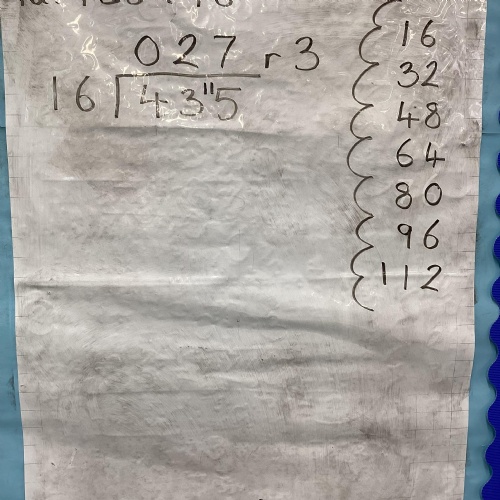 027 r 3
16 43¹¹5
16
32
48
64
80
96
112